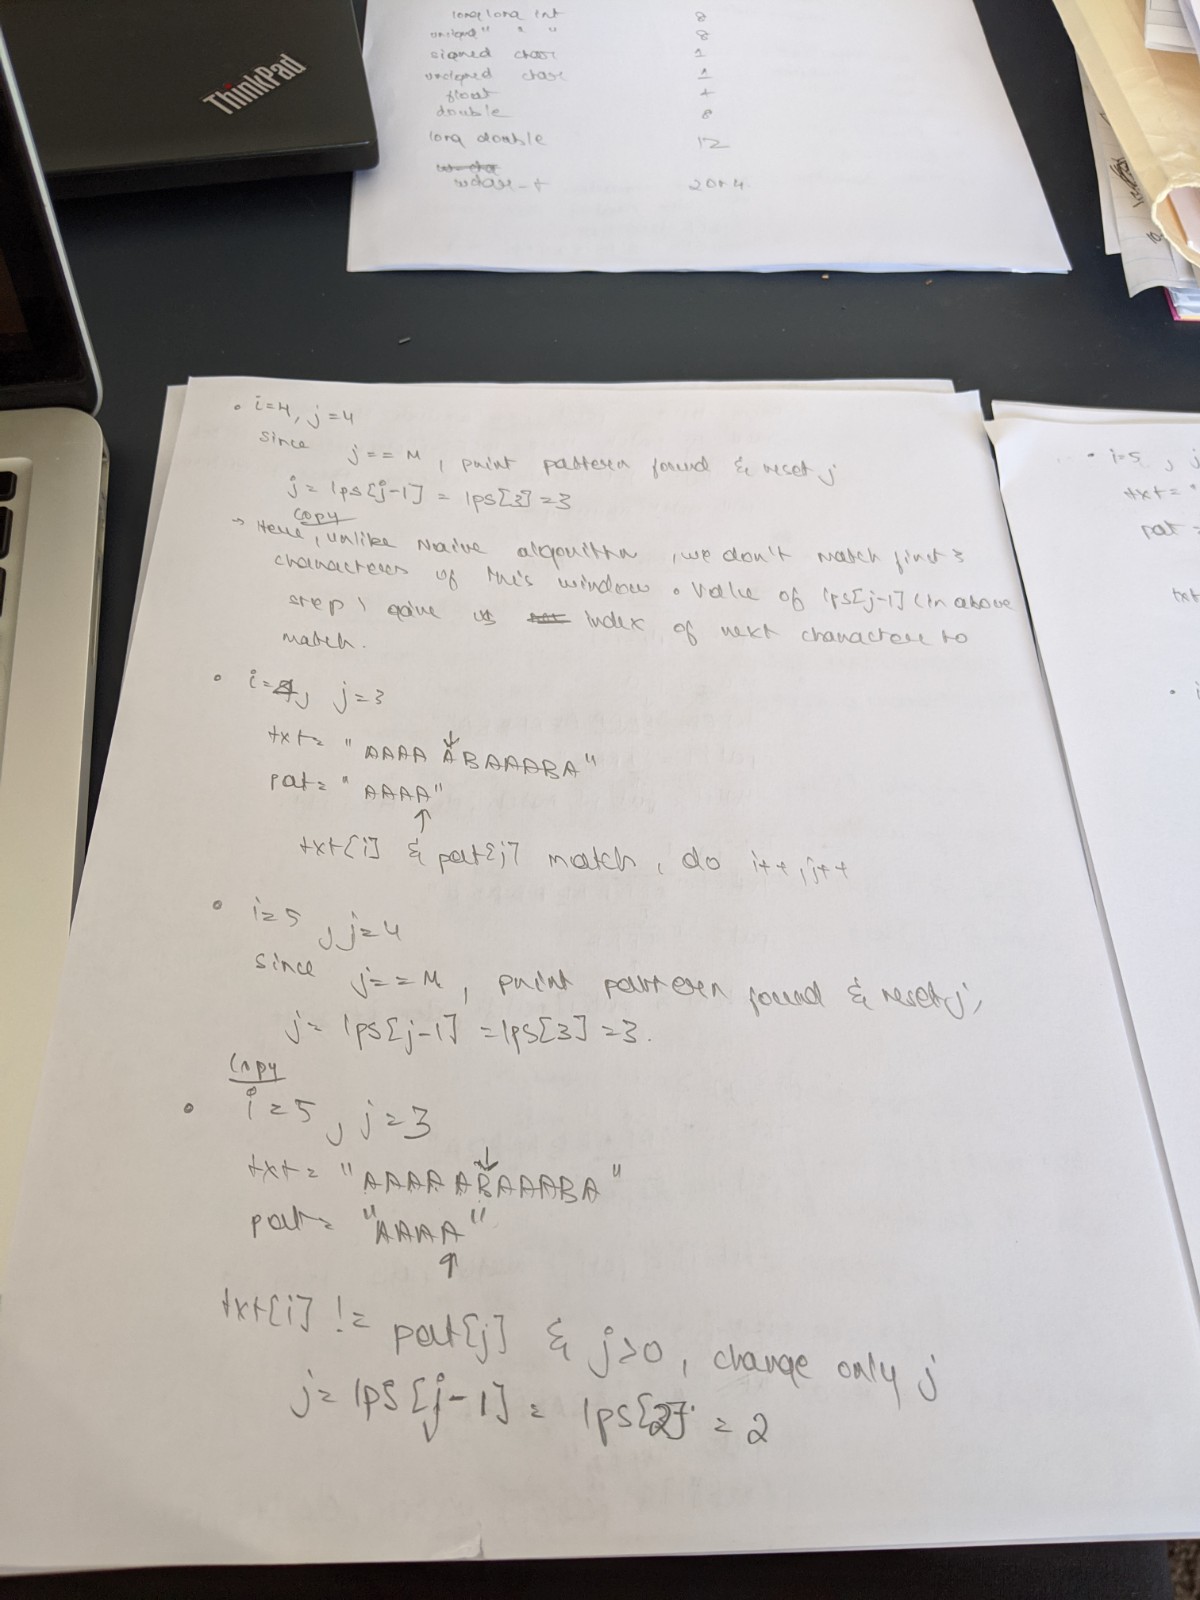 ThinkPad
long long int 8
unsigned " " " 8
signed char 1
unsigned char 1
float 4
double 8
long double 12
wchar_t 2 or 4
• i=4, j=4
since j==M, print pattern found & reset j
j = lps[j-1] = lps[3] = 3
copy
→ Here, unlike Naive algorithm, we don't match first 3
characters of this window. Value of lps[j-1] (in above
step) gave us index of next character to
match.
• i=4, j=3
txt= "AAAAABAAABA"
pat= "AAAA"
txt[i] & pat[j] match, do i++, j++
• i=5, j=4
since j==M, print pattern found & reset j,
j= lps[j-1] = lps[3] = 3.
Copy
• i=5, j=3
txt= "AAAAABAAABA"
pat= "AAAA"
txt[i] != pat[j] & j>0, change only j
j= lps[j-1] = lps[2] = 2
• i=5, j
txt= "
pat =
txt
• i